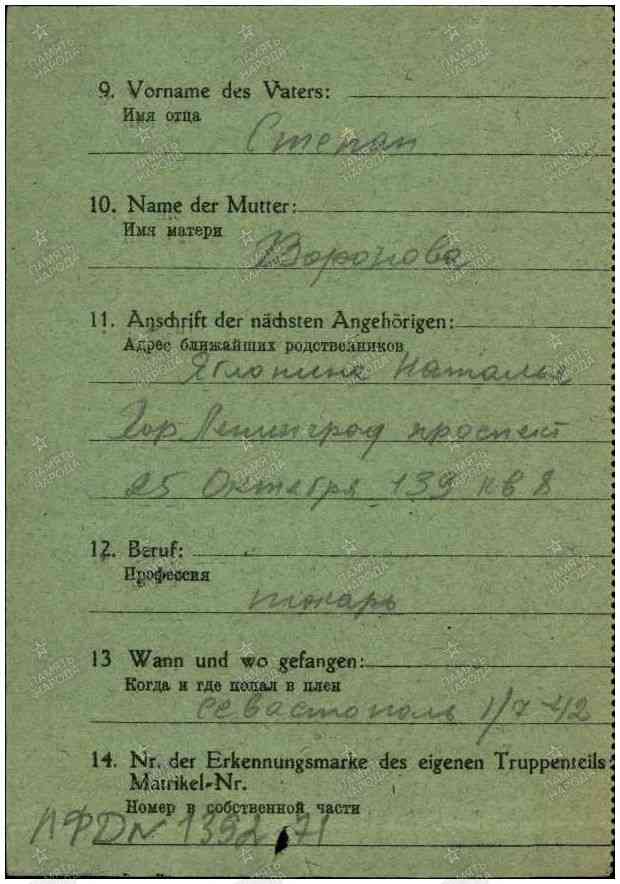 9. Vorname des Vaters:
Имя отца
Степан
10. Name der Mutter:
Имя матери
Воронова
11. Anschrift der nächsten Angehörigen:
Адрес ближайших родственников
Наталья
Гор Ленинград проспект
25 Октября 139 кв 8
12. Beruf:
Профессия
токарь
13 Wann und wo gefangen:
Когда и где попал в плен
Севастополь 1/7-42
14. Nr. der Erkennungsmarke des eigenen Truppenteils:
Matrikel-Nr.
Номер в собственной части
ПАМЯТЬ НАРОДА